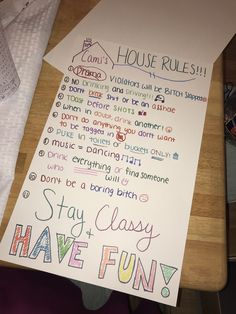 Cami's
HOUSE RULES!!!
Drama Violators will be BITCH SLAPPED
① NO drinking and driving!!
② Don't
③ Today before SHOTS
④ When in doubt drink another!
⑤ Don't do anything you don't want
to be tagged in
⑥ PUKE in toilets or buckets ONLY!
⑦ music = dancing
⑧ Drink everything or find someone
who will
⑨ Don't be a boring bitch
Stay Classy
+
HAVE FUN!